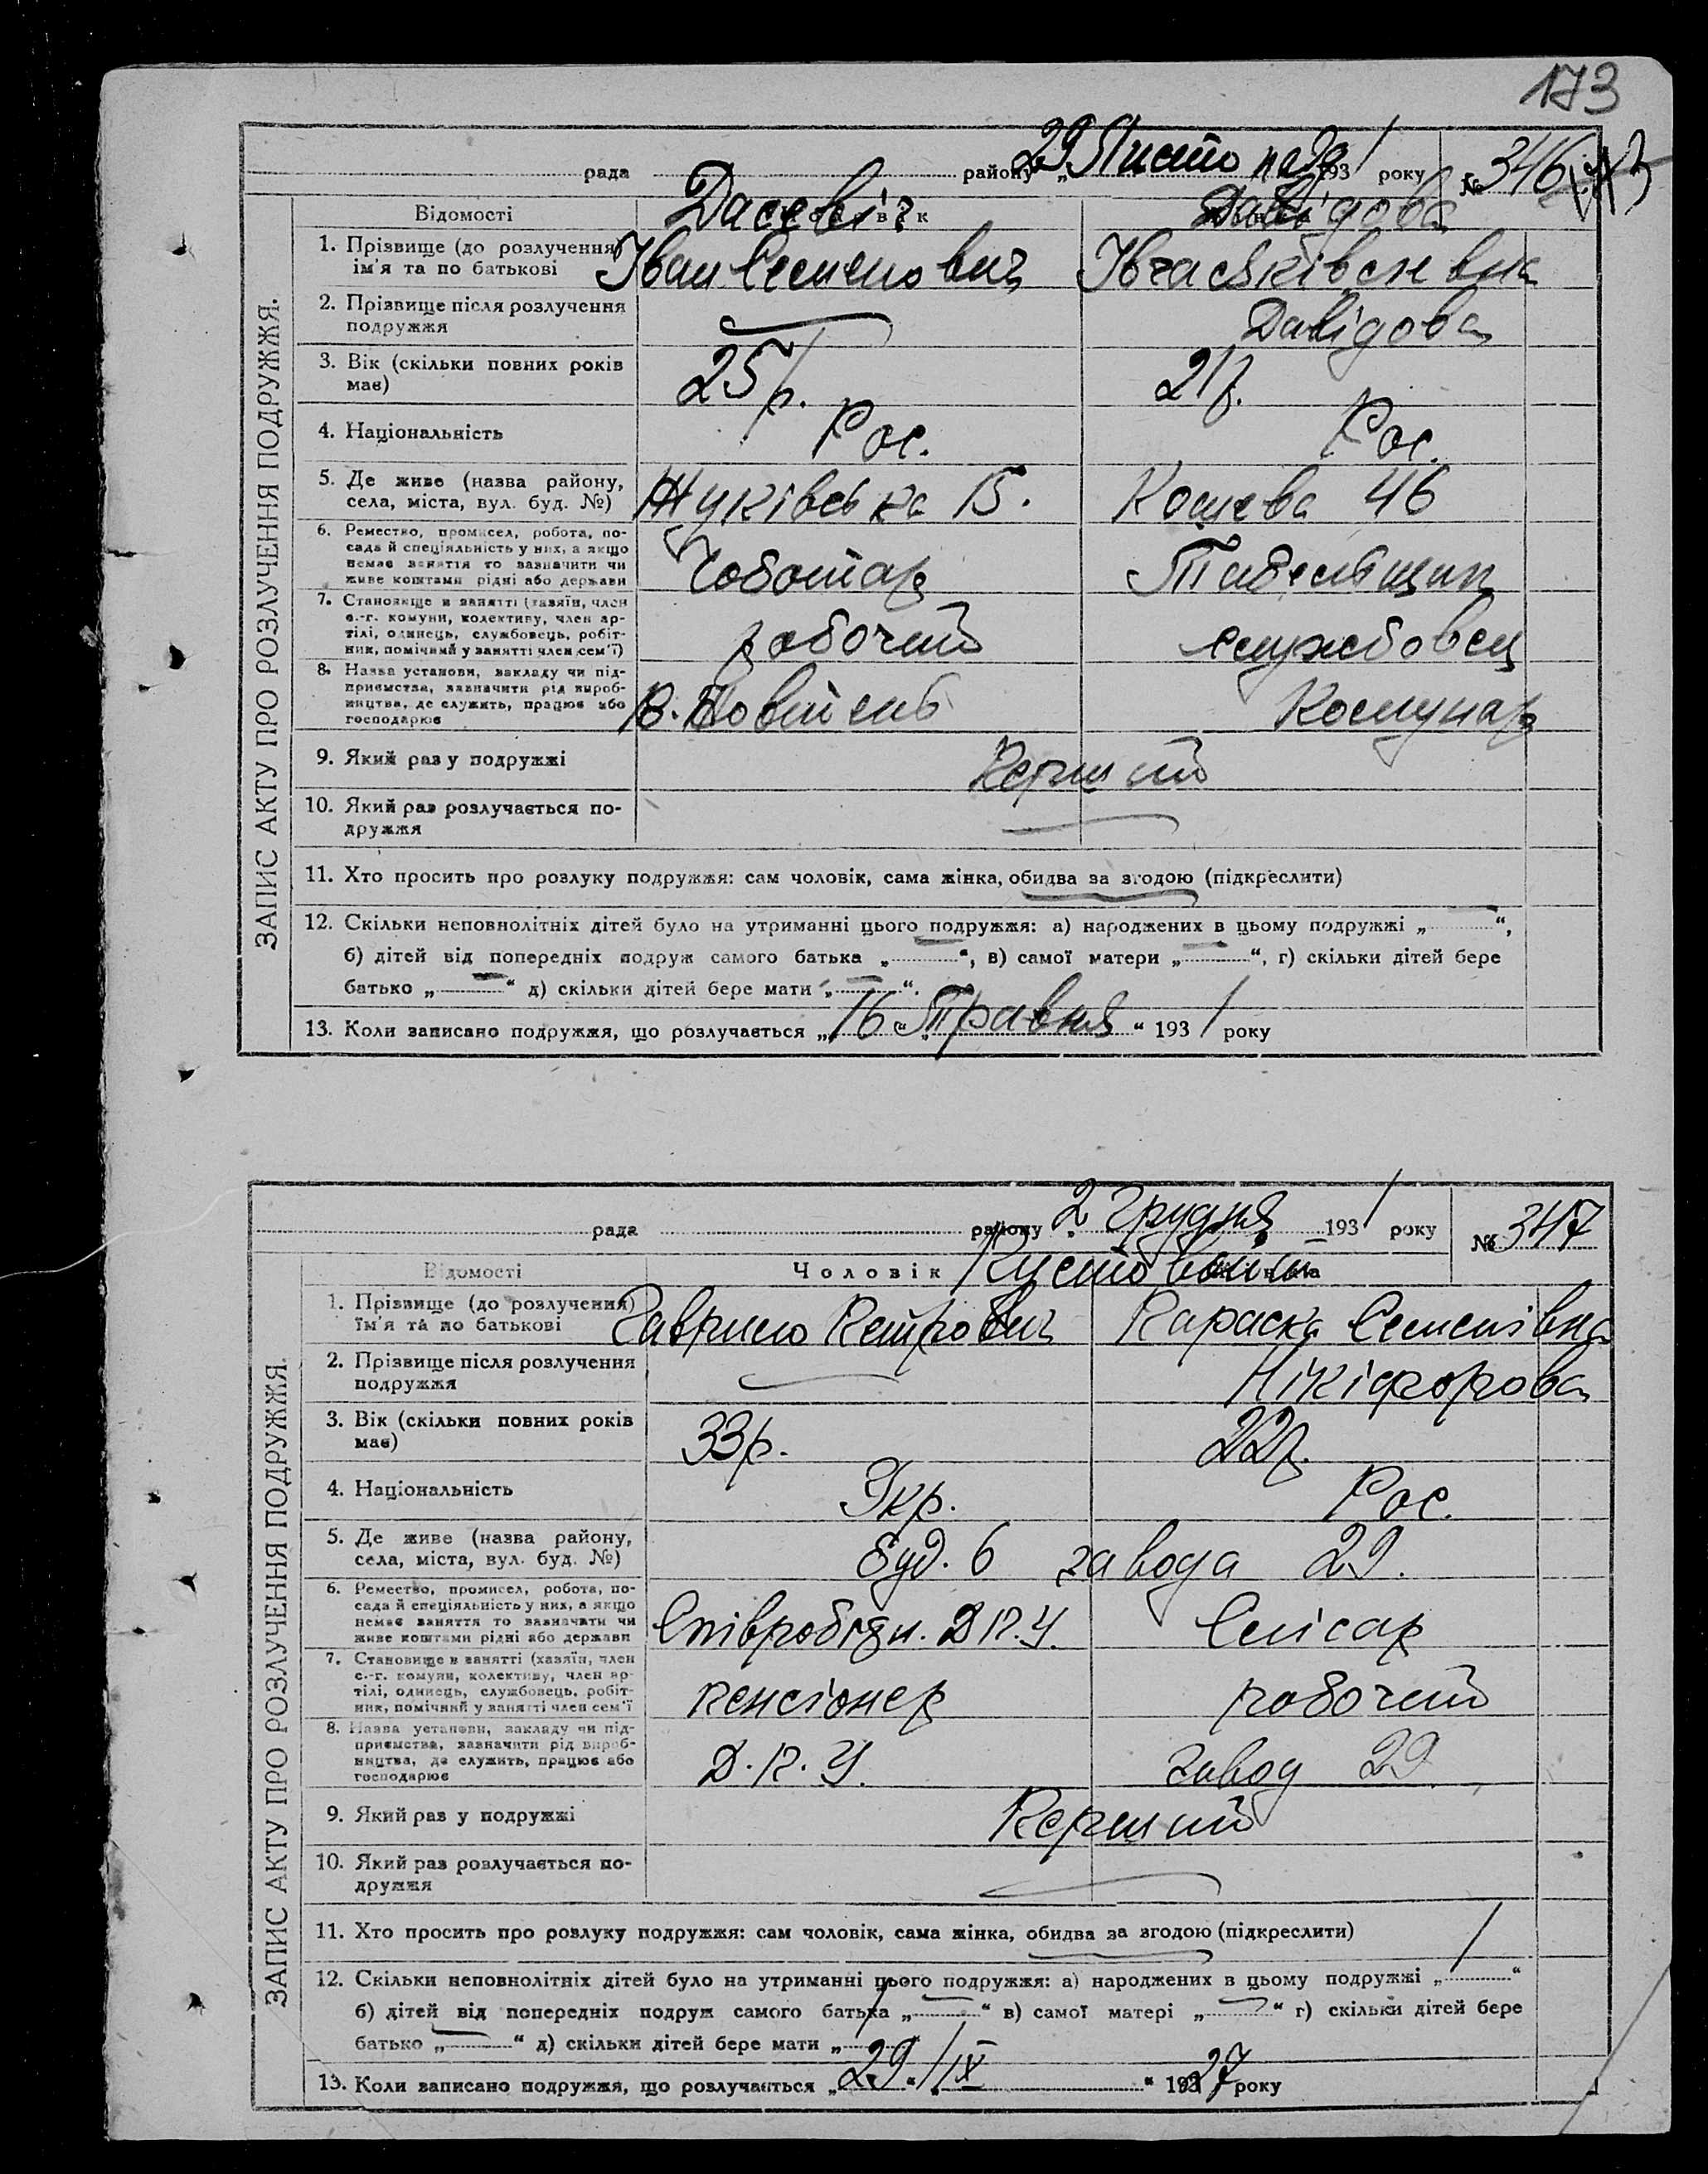 173
рада району 29 Листопада 1931 року № 346
Дасевіч Давідова
Відомості
1. Прізвище (до розлучення) Іван Семенович
ім'я та по батькові
2. Прізвище після розлучення Давідова
подружжя
3. Вік (скільки повних років 25 р. 21 р.
має)
4. Національність Рос. Рос.
5. Де живе (назва району, Жуківська 15. Кощева 46
села, міста, вул. буд. №)
6. Ремество, промисел, робота, по-
сада й спеціяльність у них, а якщо
немає заняття то зазначити чи Чоботар Табельщик
живе коштами рідні або держави
7. Становище в занятті (хазяїн, член
с.-г. комуни, колективу, член ар-
тілі, одинець, службовець, робіт- робочий службовец
ник, помічний у занятті член сем'ї)
8. Назва установи, закладу чи під-
приємства, зазначити рід вироб-
ництва, де служить, працює або Комунар
господарює
9. Який раз у подружжі Перший
10. Який раз розлучається по-
дружжя
11. Хто просить про розлуку подружжя: сам чоловік, сама жінка, обидва за згодою (підкреслити)
12. Скільки неповнолітніх дітей було на утриманні цього подружжя: а) народжених в цьому подружжі „ — “,
б) дітей від попередніх подруж самого батька „ — “, в) самої матери „ — “, г) скільки дітей бере
батько „ — “ д) скільки дітей бере мати „ — “.
13. Коли записано подружжя, що розлучається „16“ Травня “ 1931 року
ЗАПИС АКТУ ПРО РОЗЛУЧЕННЯ ПОДРУЖЖЯ.
рада району 2 Грудня 1931 року № 347
Відомості Чоловік Кустовський
1. Прізвище (до розлучення) Гаврило Петрович Параска Семенівна
ім'я та по батькові
2. Прізвище після розлучення Нікіфорова
подружжя
3. Вік (скільки повних років 33 р. 22 р.
має)
4. Національність Укр. Рос.
5. Де живе (назва району, буд. 6 завода 29.
села, міста, вул. буд. №)
6. Ремество, промисел, робота, по-
сада й спеціяльність у них, а якщо
немає заняття то зазначити чи Співробітн. Д.П.У. Слісар
живе коштами рідні або держави
7. Становище в занятті (хазяїн, член
с.-г. комуни, колективу, член ар-
тілі, одинець, службовець, робіт- пенсіонер робочий
ник, помічний у занятті член сем'ї
8. Назва установи, закладу чи під-
приємства, зазначити рід вироб-
ництва, де служить, працює або Д.П.У. завод 29
господарює
9. Який раз у подружжі Перший
10. Який раз розлучається по-
дружжя
11. Хто просить про розлуку подружжя: сам чоловік, сама жінка, обидва за згодою (підкреслити)
12. Скільки неповнолітніх дітей було на утриманні цього подружжя: а) народжених в цьому подружжі „ 1 “
б) дітей від попередніх подруж самого батька „ — “ в) самої матері „ — “ г) скільки дітей бере
батько „ — “ д) скільки дітей бере мати „ 1
13. Коли записано подружжя, що розлучається „29“ IX “ 1927 року
ЗАПИС АКТУ ПРО РОЗЛУЧЕННЯ ПОДРУЖЖЯ.